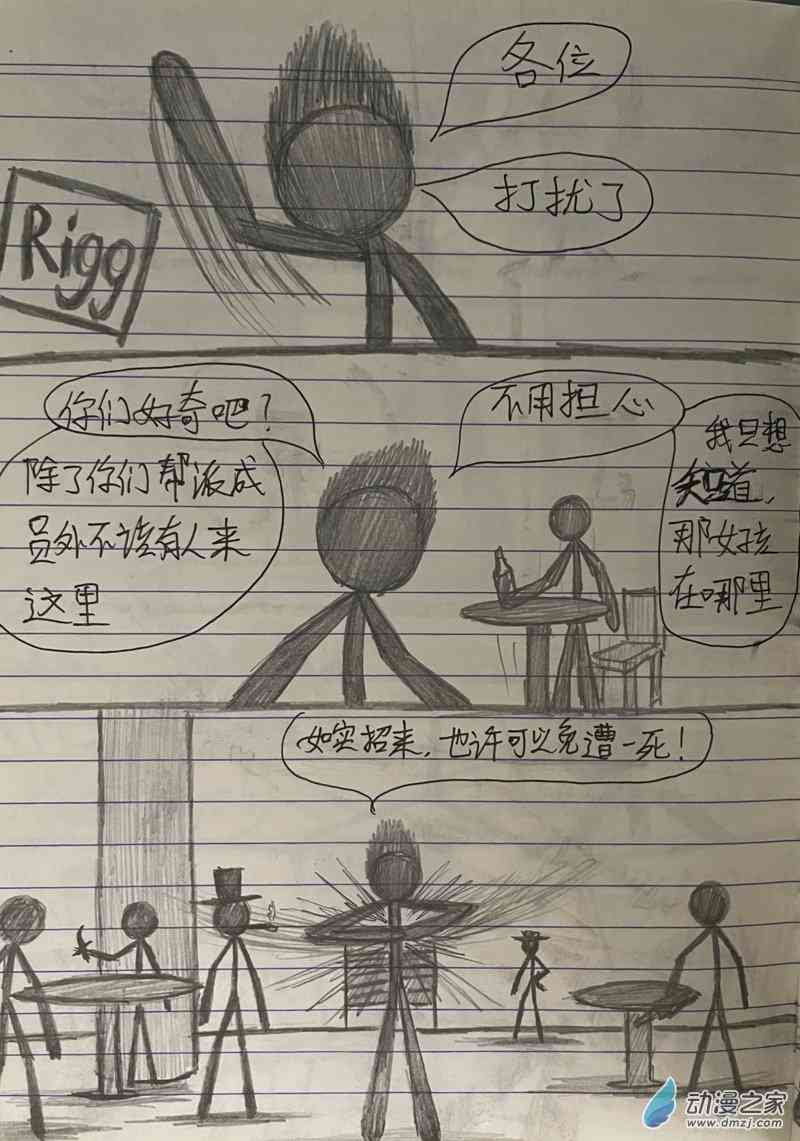 各位
打扰了
Rigg
你们好奇吧?
除了你们帮派成
员外不该有人来
这里
不用担心
我只想
知道,
那女孩
在哪里
如实招来,也许可以免遭一死!
动漫之家
www.dmzj.com